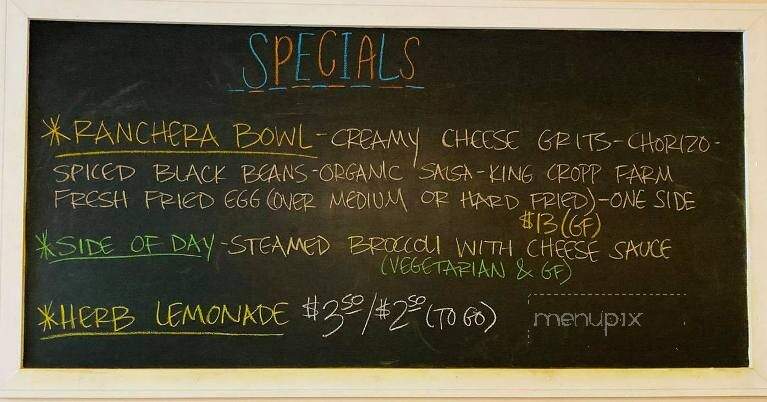 SPECIALS
*RANCHERA BOWL-CREAMY CHEESE GRITS-CHORIZO-
SPICED BLACK BEANS-ORGANIC SALSA-KING CROPP FARM
FRESH FRIED EGG (OVER MEDIUM OR HARD FRIED)-ONE SIDE
$13 (GF)
*SIDE OF DAY-STEAMED BROCCOLI WITH CHEESE SAUCE
(VEGETARIAN & GF)
*HERB LEMONADE $3.50/$2.50 (TO GO)
menupix